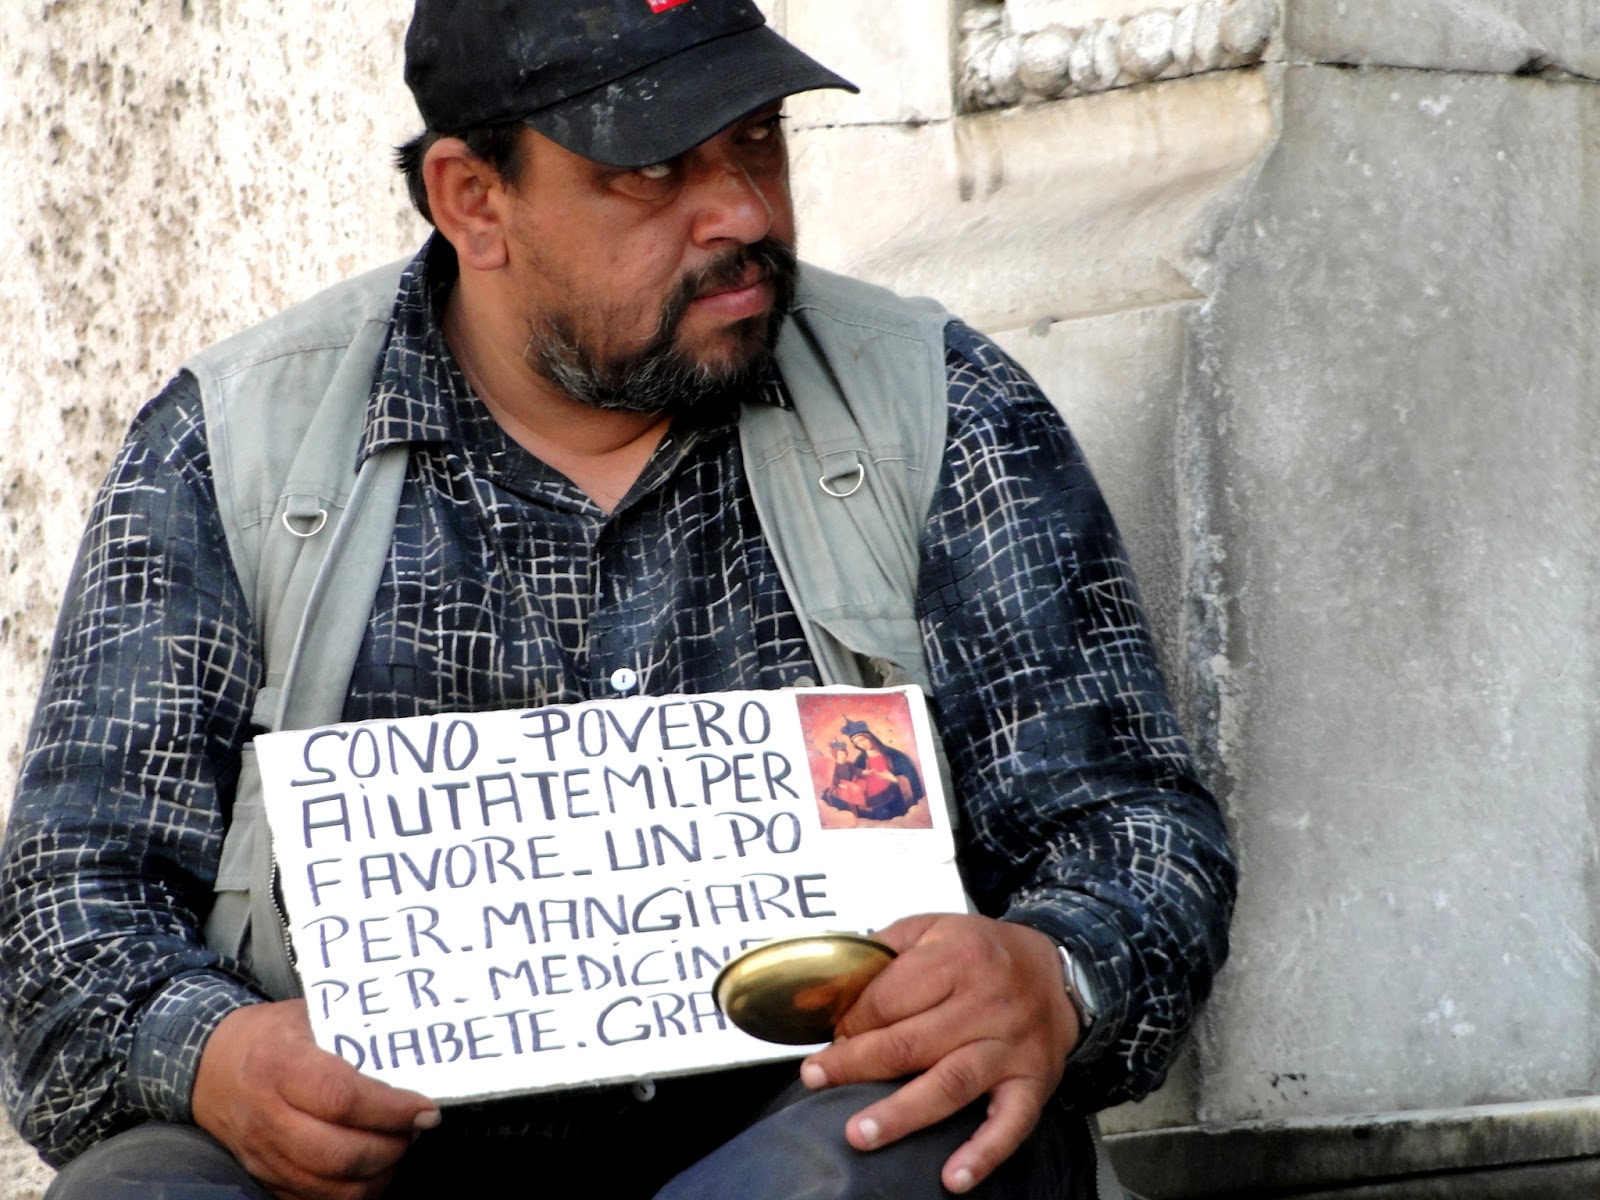 SONO_POVERO
AIUTATEMI_PER
FAVORE_UN_PO
PER_MANGIARE
PER_MEDICINE
DIABETE.GRA